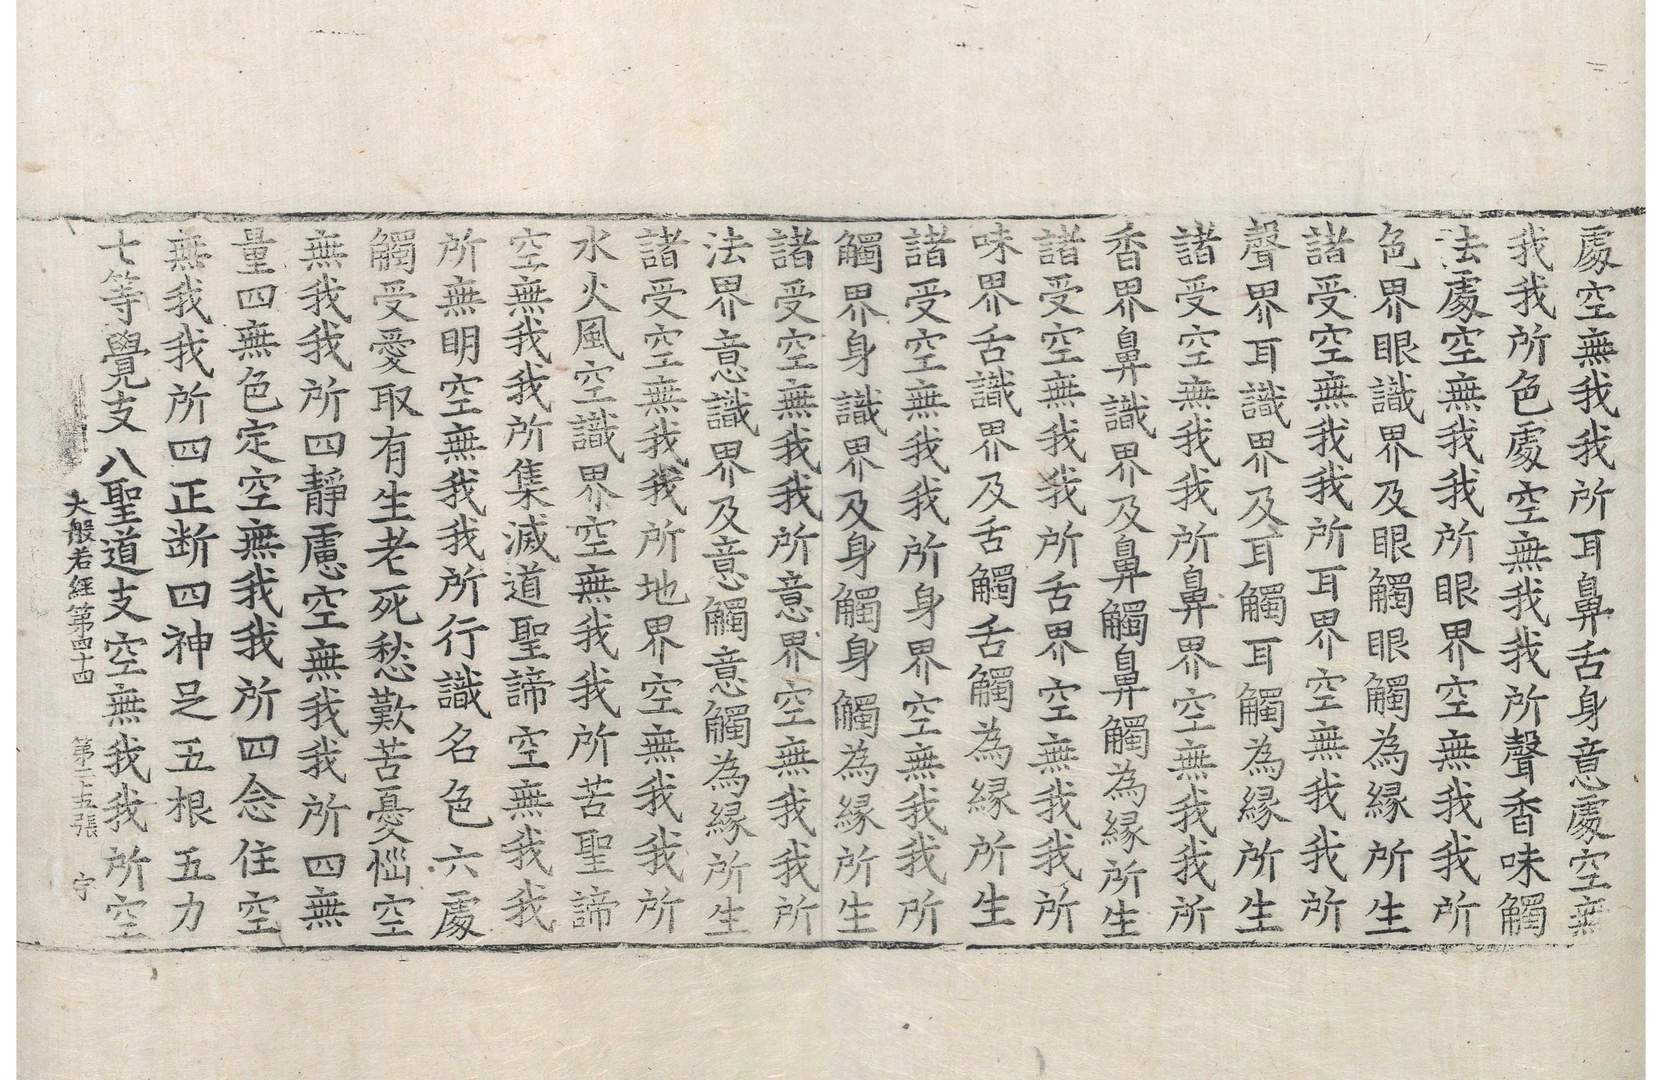 處空無我我所耳鼻舌身意處空無
我我所色處空無我我所聲香味觸
法處空無我我所眼界空無我我所
色界眼識界及眼觸眼觸為緣所生
諸受空無我我所耳界空無我我所
聲界耳識界及耳觸耳觸為緣所生
諸受空無我我所鼻界空無我我所
香界鼻識界及鼻觸鼻觸為緣所生
諸受空無我我所舌界空無我我所
味界舌識界及舌觸舌觸為緣所生
諸受空無我我所身界空無我我所
觸界身識界及身觸身觸為緣所生
諸受空無我我所意界空無我我所
法界意識界及意觸意觸為緣所生
諸受空無我我所地界空無我我所
水火風空識界空無我我所苦聖諦
空無我我所集滅道聖諦空無我我
所無明空無我我所行識名色六處
觸受愛取有生老死愁歎苦憂惱空
無我我所四靜慮空無我我所四無
量四無色定空無我我所四念住空
無我我所四正断四神足五根五力
七等覺支八聖道支空無我我所空
大般若經第四十四 第二十五張 宇